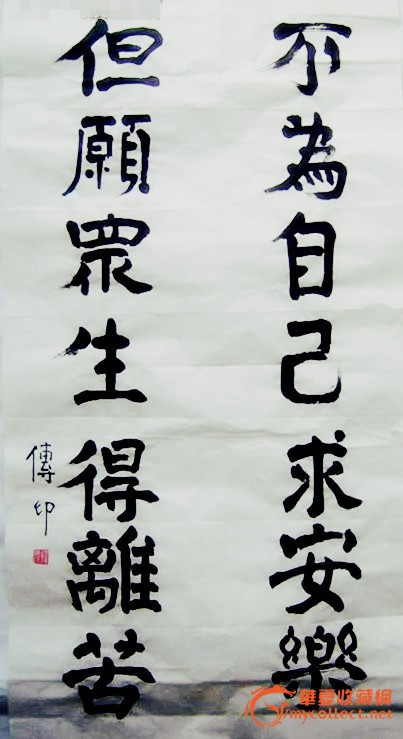 不為自己求安樂
但願眾生得離苦
傳印
華夏收藏網
mycollect.net